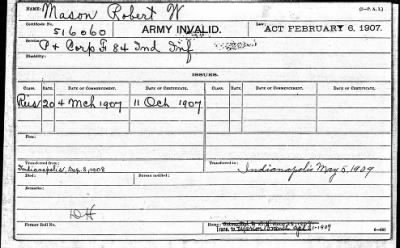 NAME: Mason Robert W (3-P. A. I.)
Certificate No. 516060 ARMY INVALID. ACT FEBRUARY 6, 1907.
Service: P + Corp F 84 Ind Inf
Disability:
ISSUES.
CLASS. RATE. DATE OF COMMENCEMENT. DATE OF CERTIFICATE. CLASS. RATE. DATE OF COMMENCEMENT. DATE OF CERTIFICATE.
Reis 20 4 Mch 1907 11 Och 1907
Fees:
Transferred from: Transferred to:
Indianapolis, Aug. 3, 1908 Indianapolis May 5, 1909
Died: Person notified:
Remarks:
DH
Former Roll No. Home:
1909